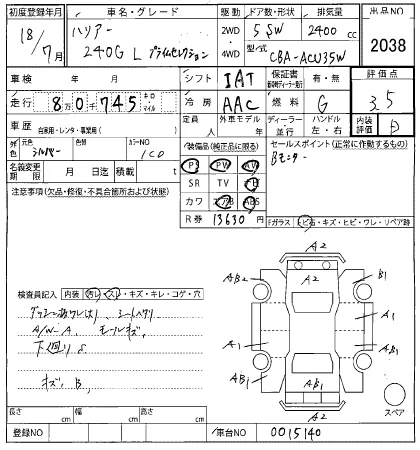 初度登録年月 車名・グレード 駆動 ドア数・形状 排気量 出品NO
18/7月 ハリアー 240G L プライムセレクション 2WD 4WD 5 SW 2400 cc 2038
型式 CBA-ACU35W
車検 年 月 シフト IAT 保証書 有・無 評価点
走行 8万0千745 km マイル 冷房 AAC 燃料 G 3.5
車歴 自家用・レンタ・事業用( ) 定員 外車モデル年 ディーラー 並行 ハンドル 左・右 内装評価 D
外色 元色 シルバー 色替 カラーNO 1C0 装備品(純正品に限る) セールスポイント(正常に作動するもの)
Bモニター
名義変更期限 月 日迄 積載 t PS PW AV
注意事項(欠品・修復・不具合箇所および状態) SR TV ナビ
カワ エアB ABS
R券 13630 円 Fガラス トビ石・キズ・ヒビ・ワレ・リペア跡
A2
A2
AB2 B1
A1 A1
AB1 A1
AB1
A2
スペア
検査員記入 内装 汚れ・スレ・キズ・キレ・コゲ・穴
シートヘタリ
A/W-A、モールキズ、
下廻り
キズ、B、
長さ cm 幅 cm 高さ cm
登録NO 車台NO 0015140